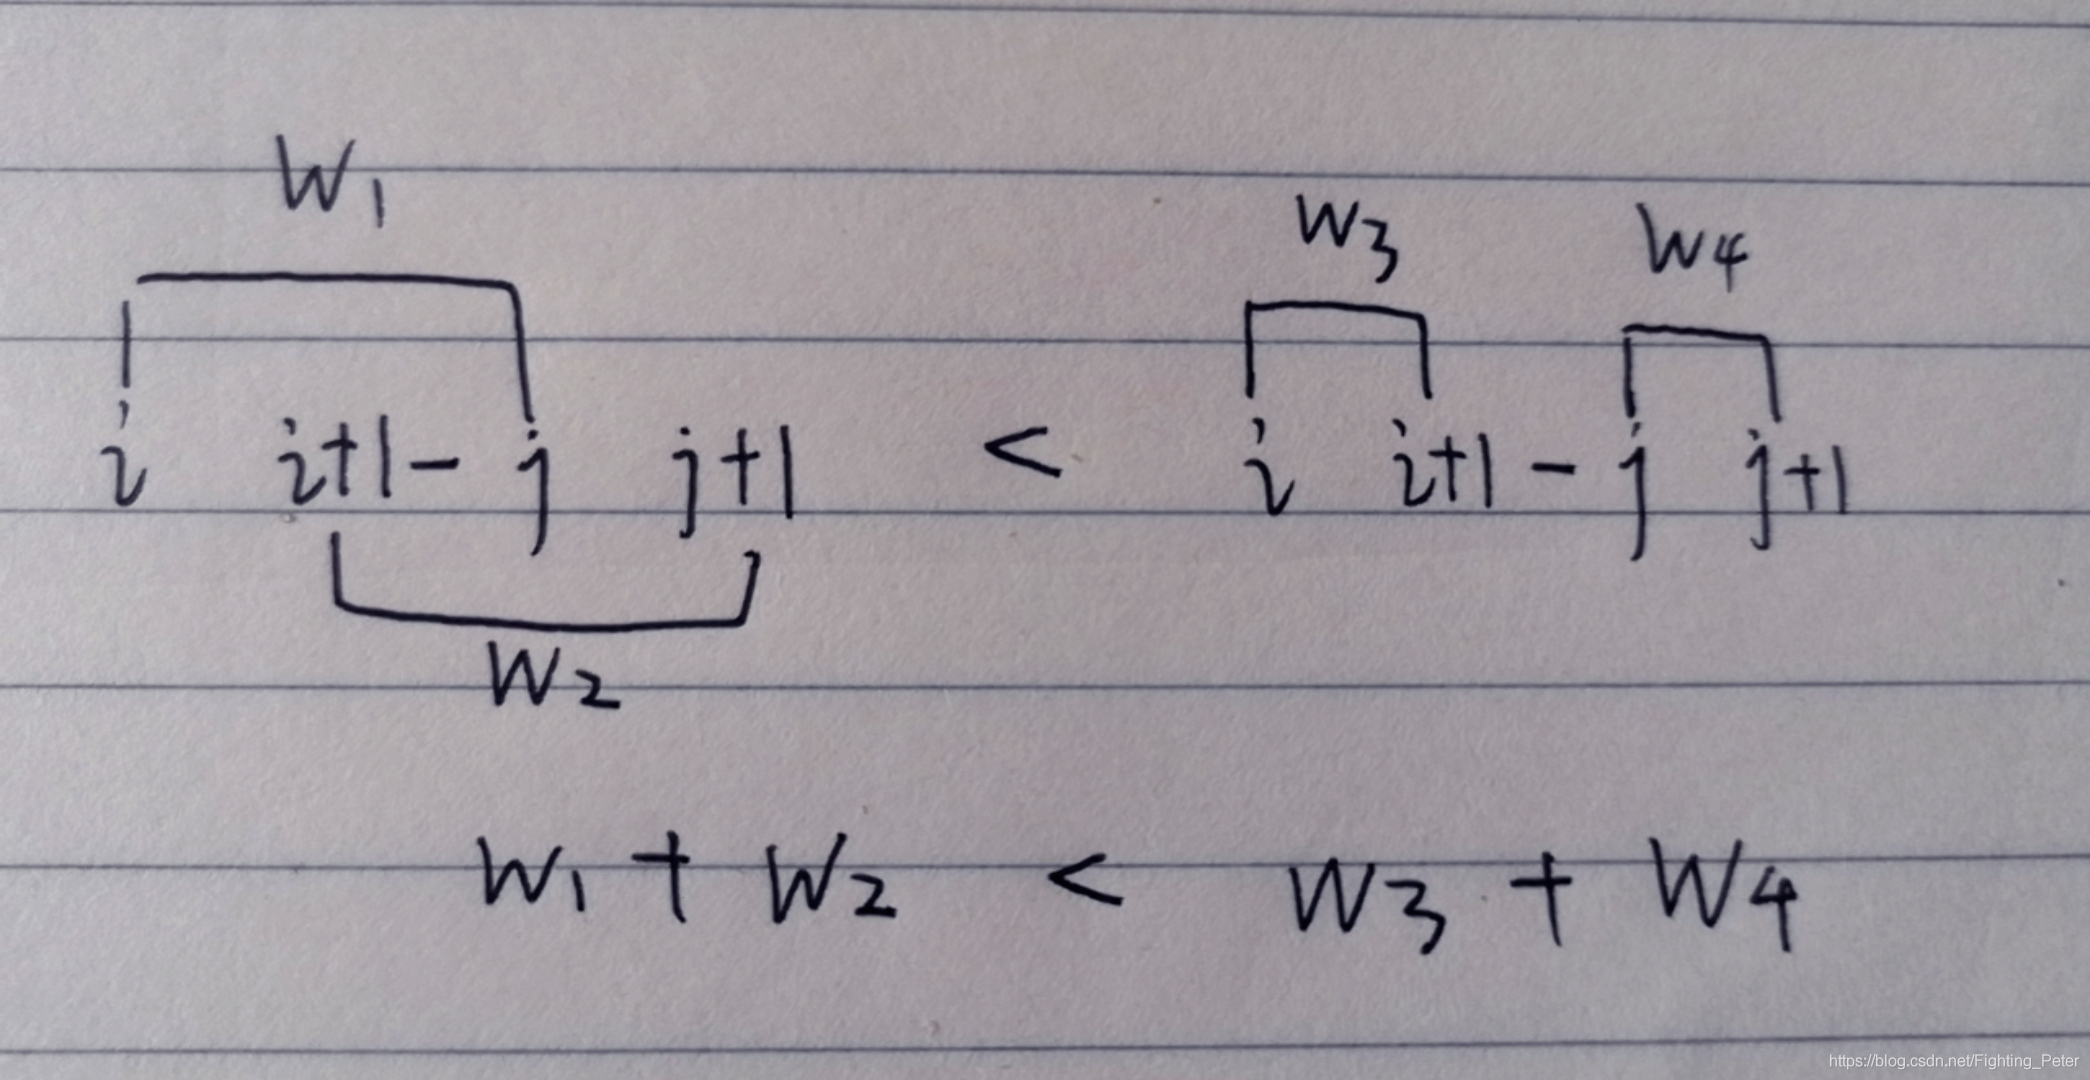 W1
W3 W4
i i+1 - j j+1 < i i+1 - j j+1
W2
W1 + W2 < W3 + W4
https://blog.csdn.net/Fighting_Peter